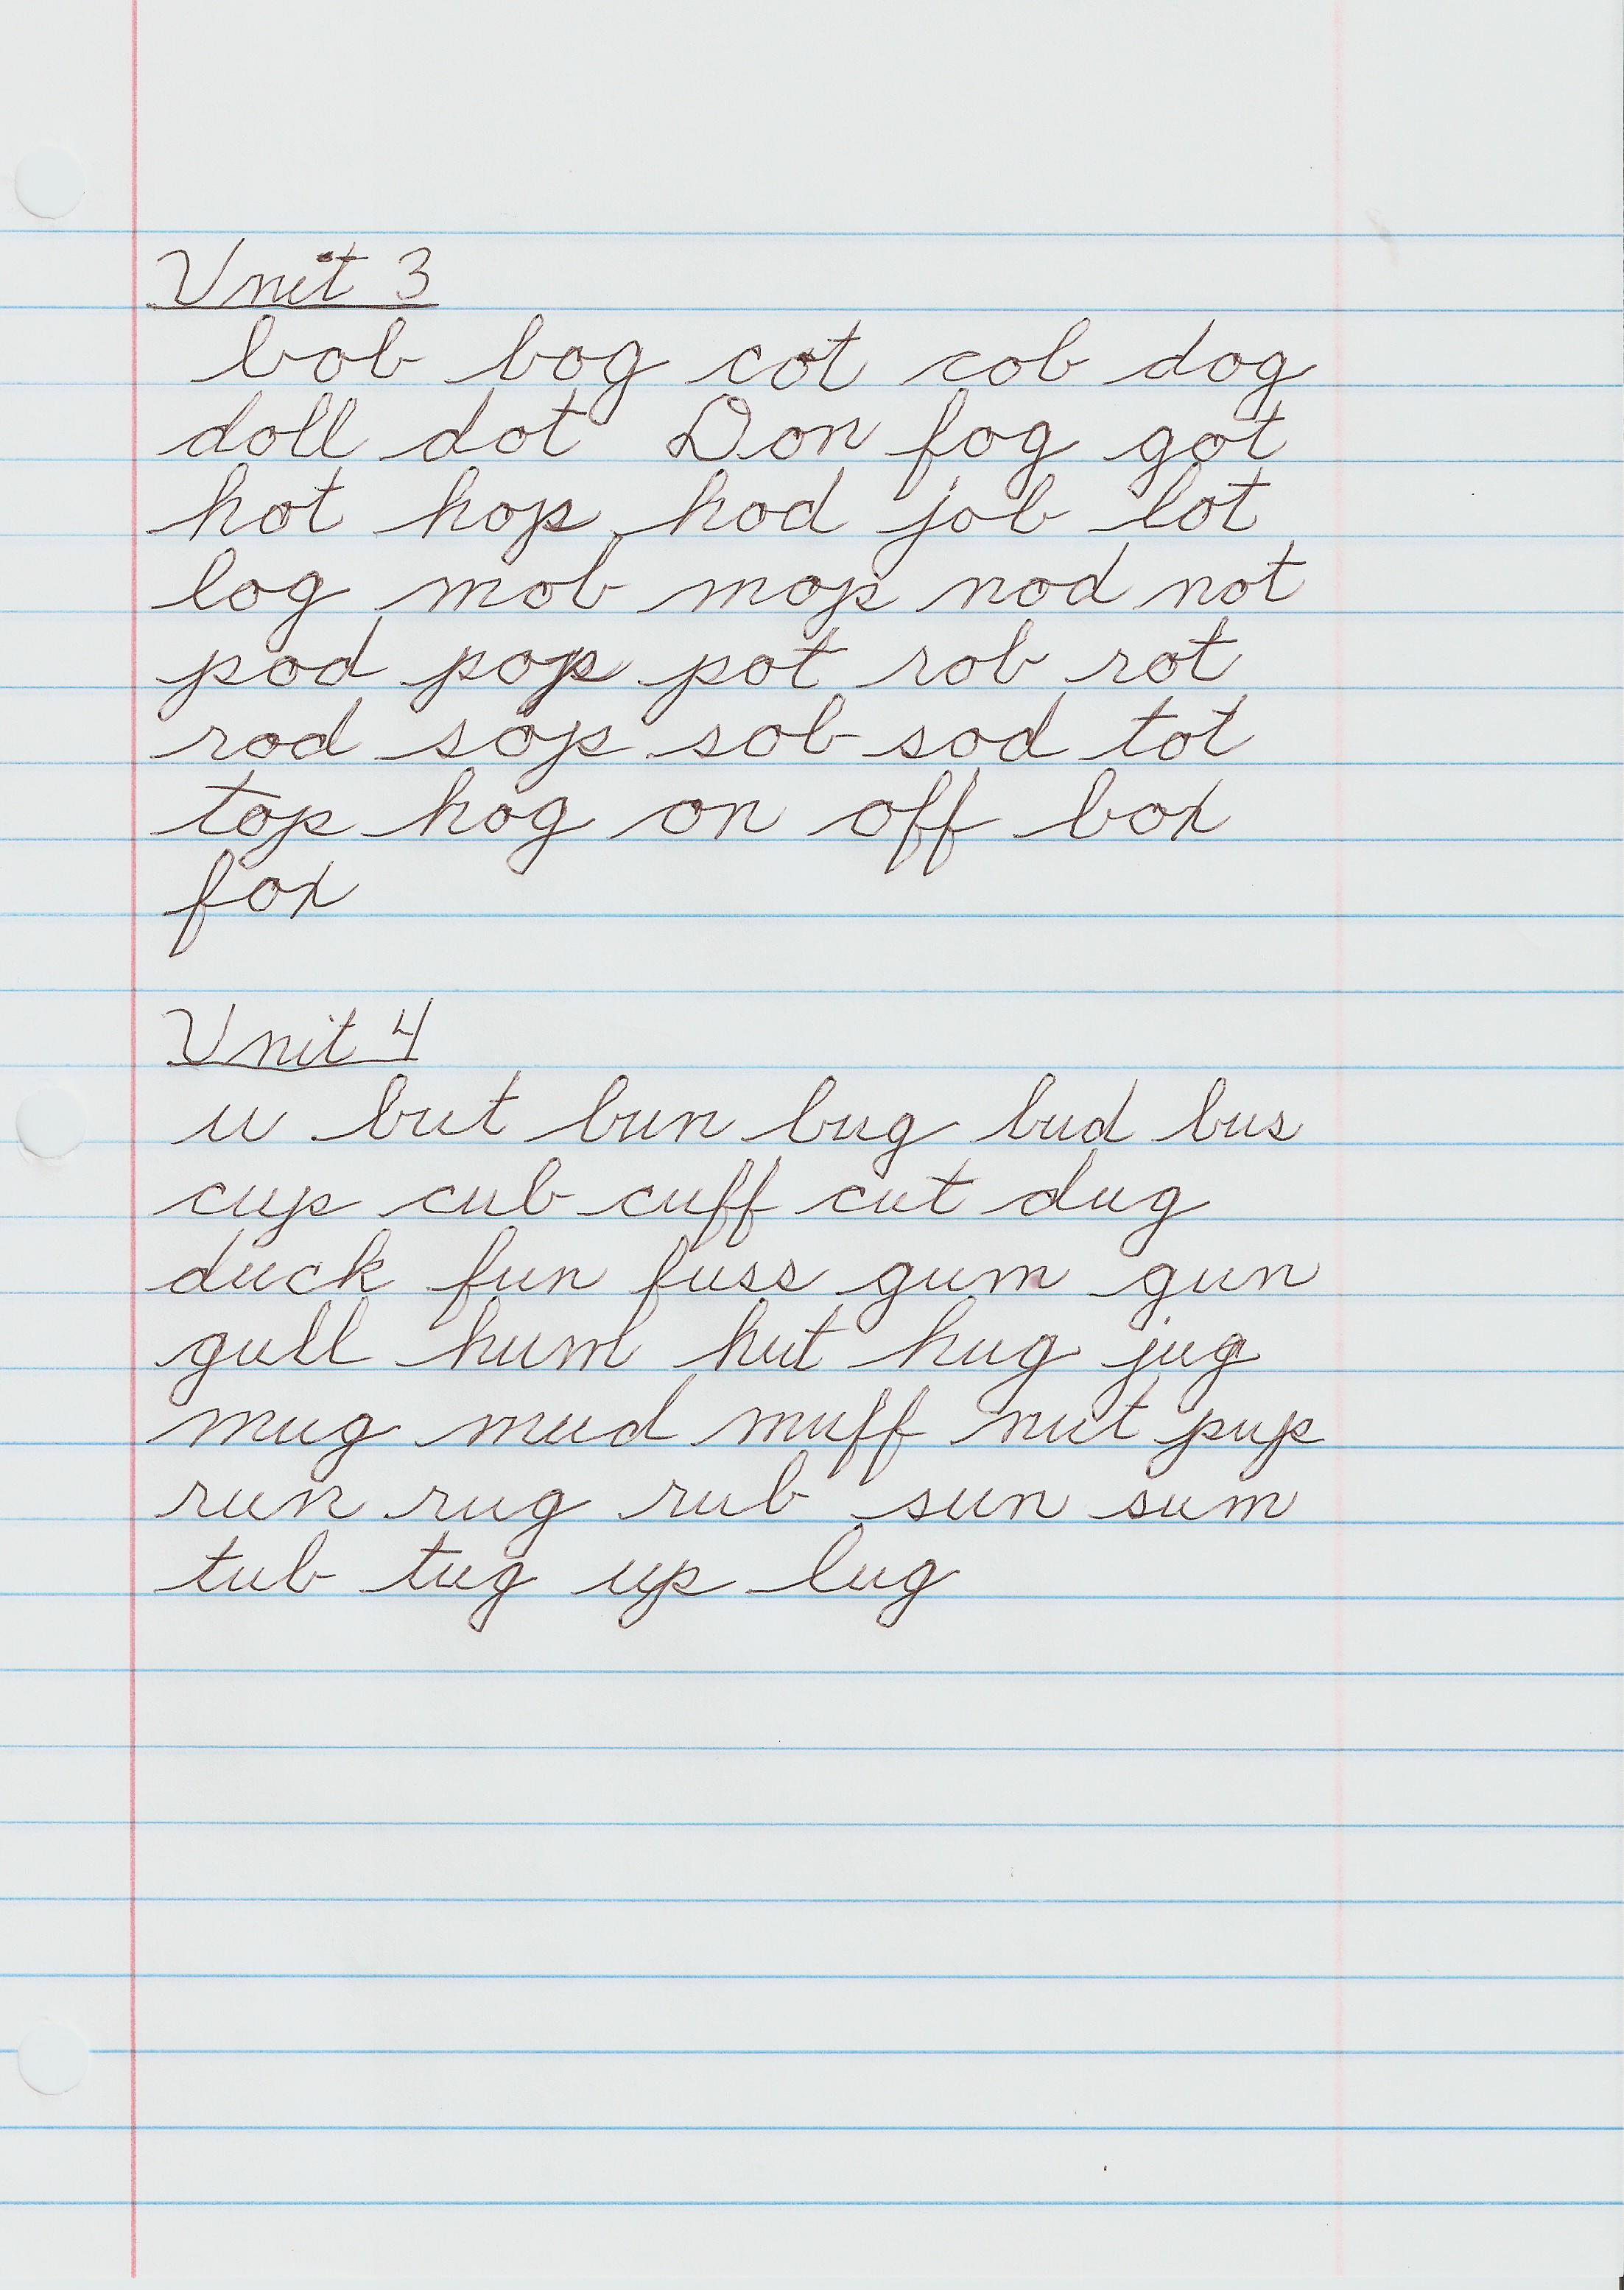 Unit 3
bob bog cot cob dog
doll dot Don fog got
hot hop hod job lot
log mob mop nod not
pod pop pot rob rot
rod sop sob sod tot
top hog on off box
fox
Unit 4
u but bun bug bud bus
cup cub cuff cut dug
duck fun fuss gum gun
gull hum hut hug jug
mug mud muff nut pup
run rug rub sun sum
tub tug up lug